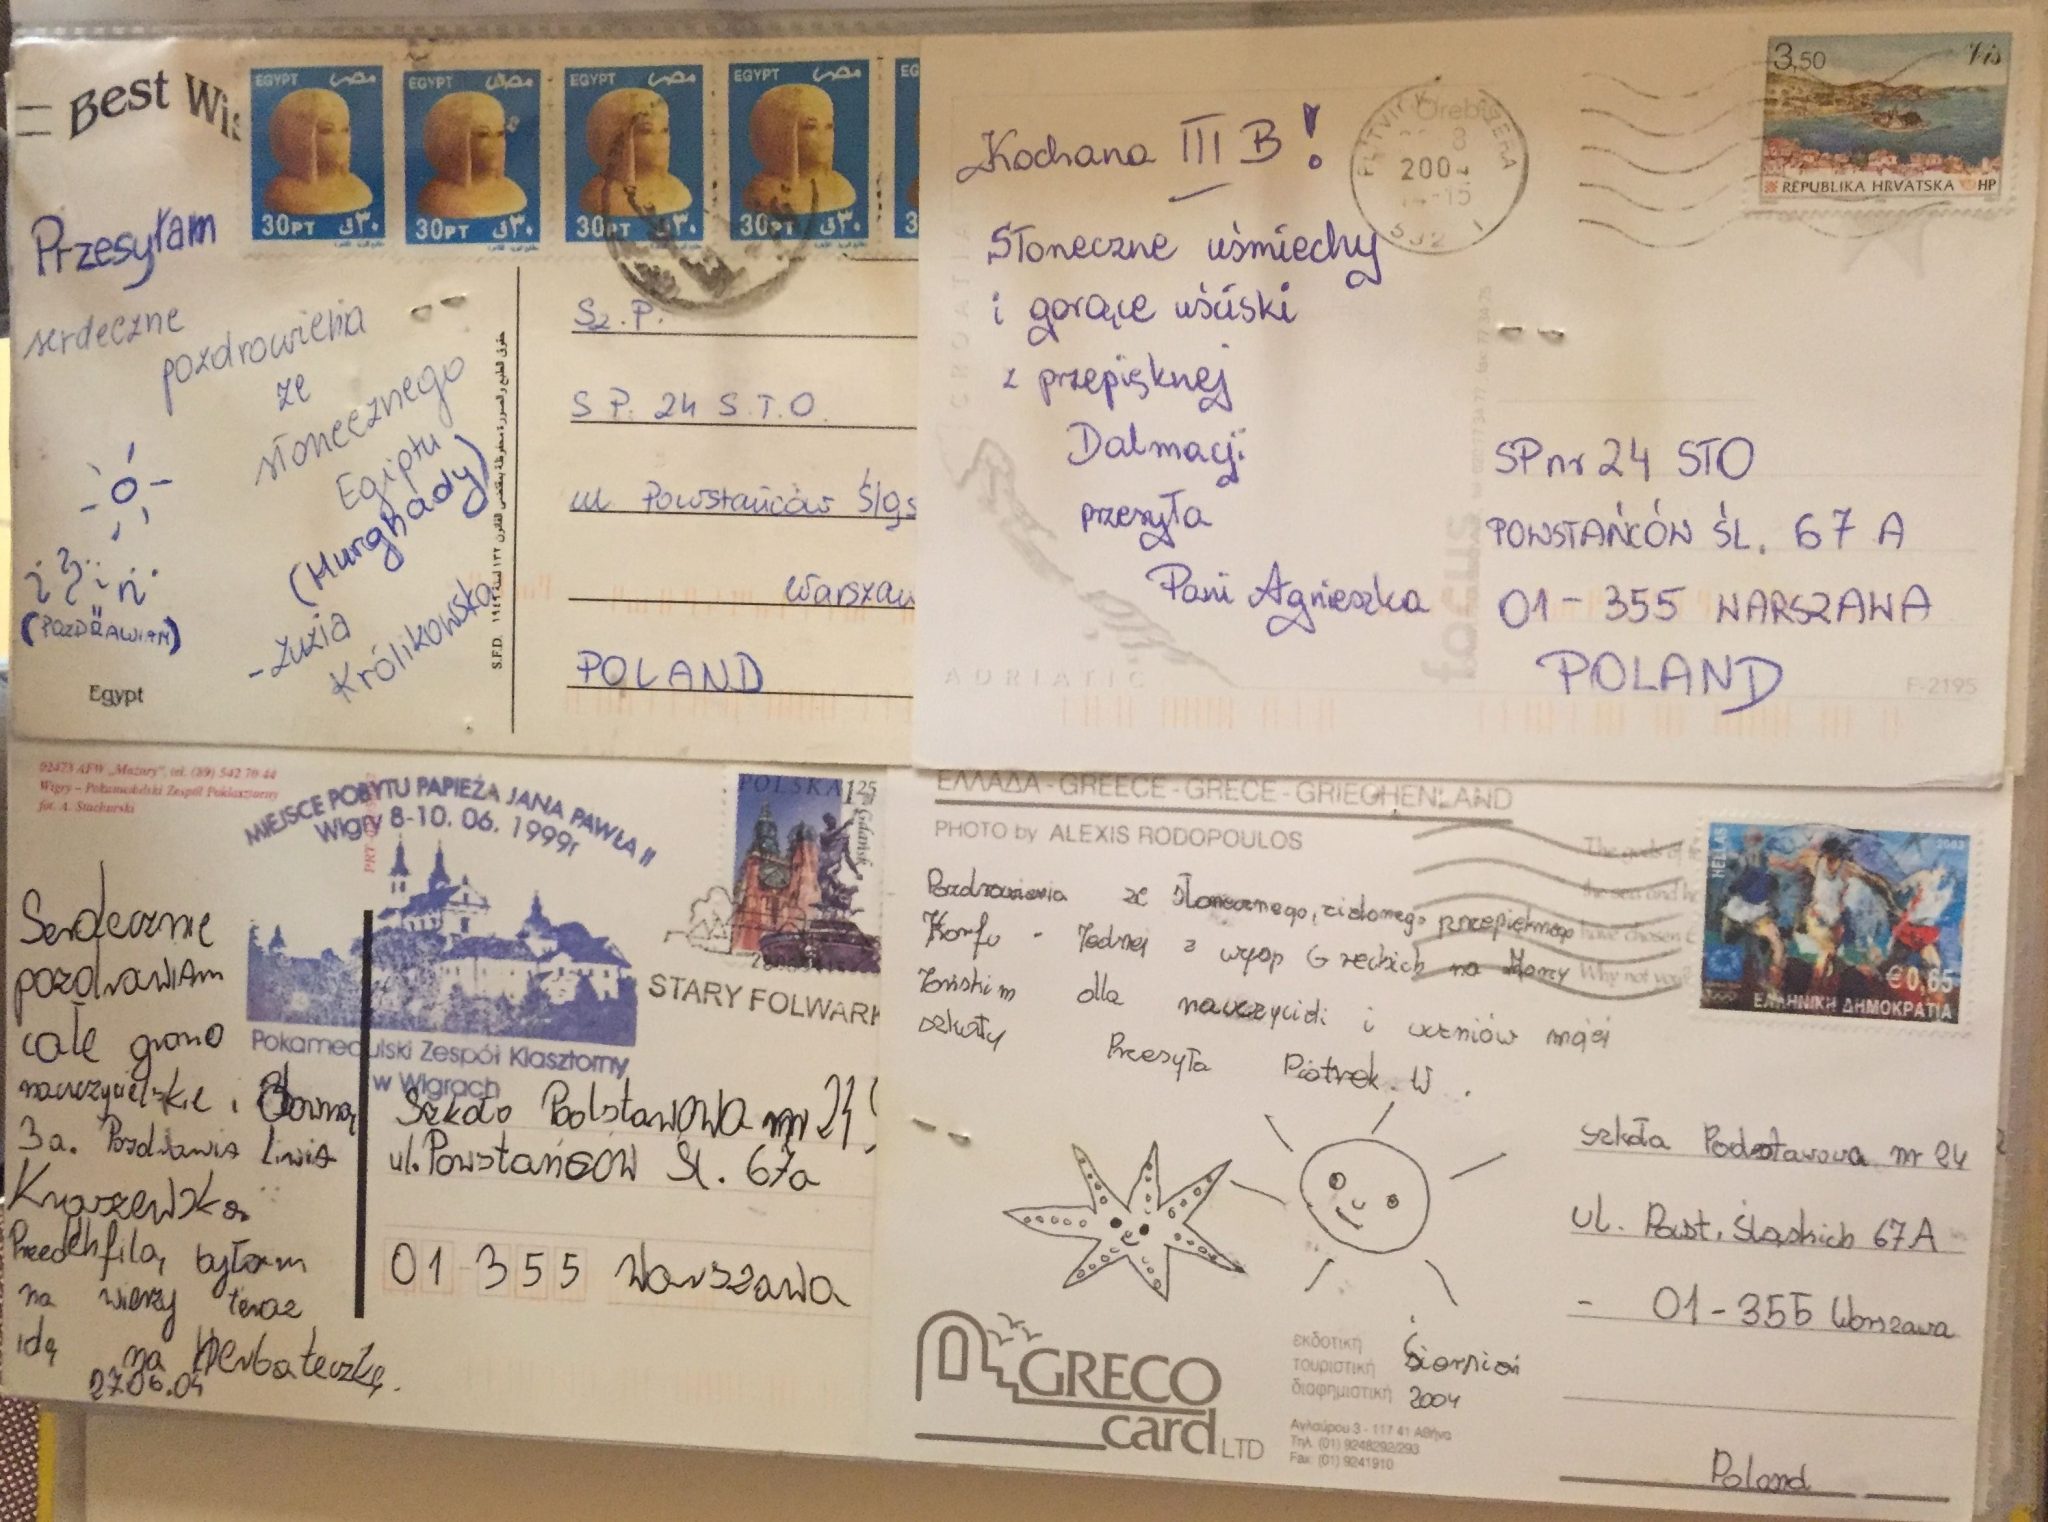 Best Wis
EGYPT مصر
30PT ٣٠ ق
EGYPT مصر
30PT ٣٠ ق
EGYPT مصر
30PT ٣٠ ق
EGYPT مصر
30PT ٣٠ ق
EG
3
Przesyłam
serdeczne
pozdrowienia
ze
słonecznego
Egiptu
(Hurghady)
- Zuzia
Królikowska
(POZDRAWIAM)
Egypt
S.F.D.
Sz. P.
S P. 24 S.T.O.
ul Powstańców Ślgs
Warszaw
POLAND
Kochana III B!
Słoneczne uśmiechy
i gorące uściski
z przepięknej
Dalmacji
przesyła
Pani Agnieszka
Orebi
2004
3,50 Vis
REPUBLIKA HRVATSKA HP
CROATIA
ADRIATIC
focus
SP nr 24 STO
POWSTAŃCÓW ŚL. 67 A
01-355 WARSZAWA
POLAND
F-2195
02473 AFW „Mazury", tel. (89) 542 70 44
Wigry - Pokamedulski Zespół Poklasztorny
fot. A. Stachurski
MIEJSCE POBYTU PAPIEŻA JANA PAWŁA II
Wigry 8-10. 06. 1999r
Pokamedulski Zespół Klasztorny
w Wigrach
POLSKA 1 25
Gdańsk
STARY FOLWARK
Serdecznie
pozdrawiam
całe grono
nauczycielskie i
3a. Pozdrawia Liwia
Kraszewska
Przed chfilą byłam
na wierzy teraz
idę na Herbateczkę.
27.06.04
Szkoło Podstawowa nr 24!
ul. Powstańców Śl. 67a
01 355 Warszawa
ΕΛΛΑΔΑ - GREECE - GRECE - GRIECHENLAND
PHOTO by ALEXIS RODOPOULOS
Pozdrowienia ze słonecznego, zielonego przepięknego
Korfu - Jednej z wysp Greckich na Morzy
Jońskim dla nauczycieli i uczniów mojej
szkoły Przesyła Piotrek. W.
The gods of
the sea and
have chosen
Why not you?
HELLAS 2003
€0,65
ΕΛΛΗΝΙΚΗ ΔΗΜΟΚΡΑΤΙΑ
szkoła Podstawowa nr 24
ul. Powst. Śląskich 67A
- 01-355 Warszawa
Poland
GRECO
card LTD
εκδοτική
τουριστική
διαφημιστική
Sierpień
2004
Αγλαύρου 3 - 117 41 Αθήνα
Τηλ. (01) 9248292/293
Fax: (01) 9241910